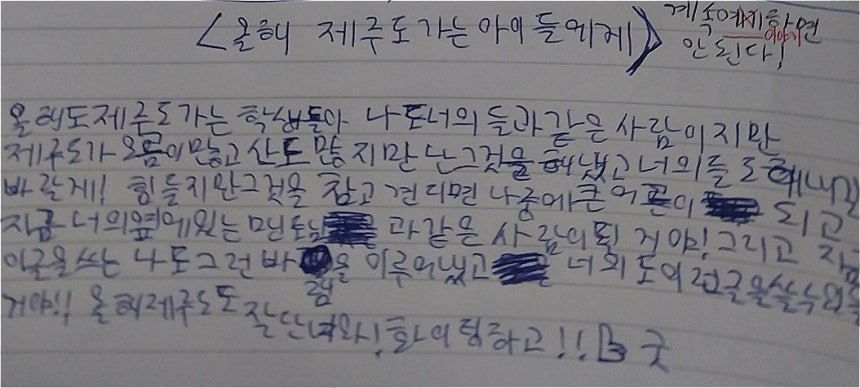 <올해 제주도가는아이들에게>
계속예기하면
이야기
안된다!
올해도제주도가는 학생들아 나도너의들과같은사람이지만
제주도가오름이많고산도많지만난그것을해냈고너의들도해내길
바랄게! 힘들지만그것을 참고견디면나중에큰어른이 되고
지금너의옆에있는멘토 과같은 사람이될거야!그리고 지금
이글을쓰는 나도그런바램을 이루어냈고 너희도이런글을쓸수있을
거야!! 올해제주도도 잘다녀와!화이팅하고!! 굿